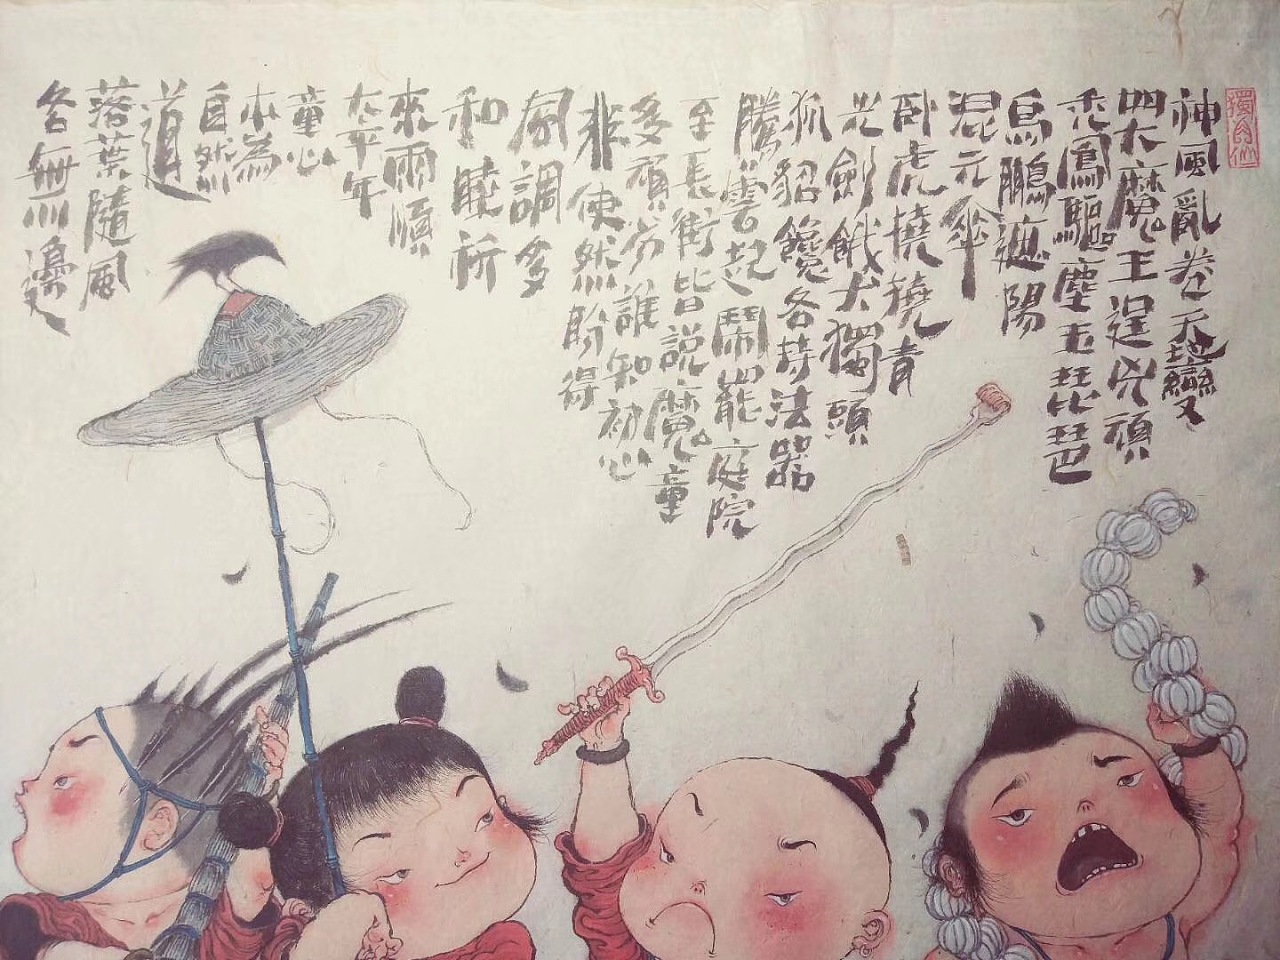 神風亂卷天地變
四大魔王逞兇頑
禿鳳驅塵玉琵琶
烏鵬遮陽
混元傘
卧虎橈鐃青
光劍餓犬獨頭
狐貂饞各持法器
騰雲起鬧龍庭院
至長街皆說魔童
多頑劣誰知初心
非使然盼得
風調多
和曉祈
來雨順
太平年
童心
本為
自然
道
落葉隨風
各無邊